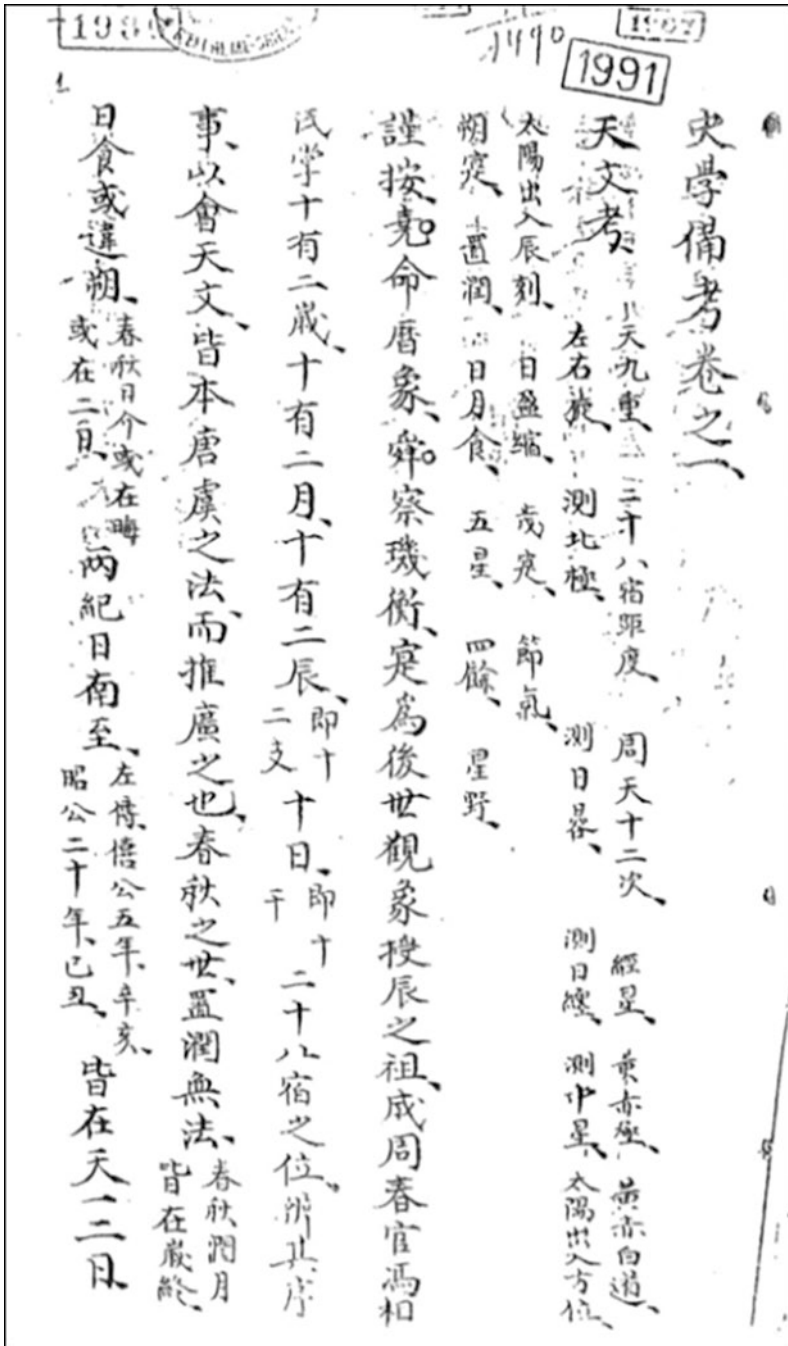 史學備考卷之一、
天文考、 天九重、 二十八宿距度、 周天十二次、 經星、 黄赤極、 黄赤白道、
左右旋、 測北極、 測日晷、 測日纏、 測中星、 太陽出入方位、
太陽出入辰刻、 日盈縮、 歲寔、 節氣、
朔寔、 置潤、 日月食、 五星、 四餘、 星野、
謹按、堯命曆象、舜察璣衡、寔爲後世觀象授辰之祖、成周春官馮相
氏學十有二歲、十有二月、十有二辰、即十二支 十日、即十干 二十八宿之位、辨其序
事、以會天文、皆本唐虞之法、而推廣之也、春秋之世、置潤無法、春秋潤月皆在歲終、
日食或違朔、春秋日介或在晦或在二日、 兩紀日南至、左傳僖公五年、辛亥、昭公二十年、己丑、 皆在天一二日、
1991
1